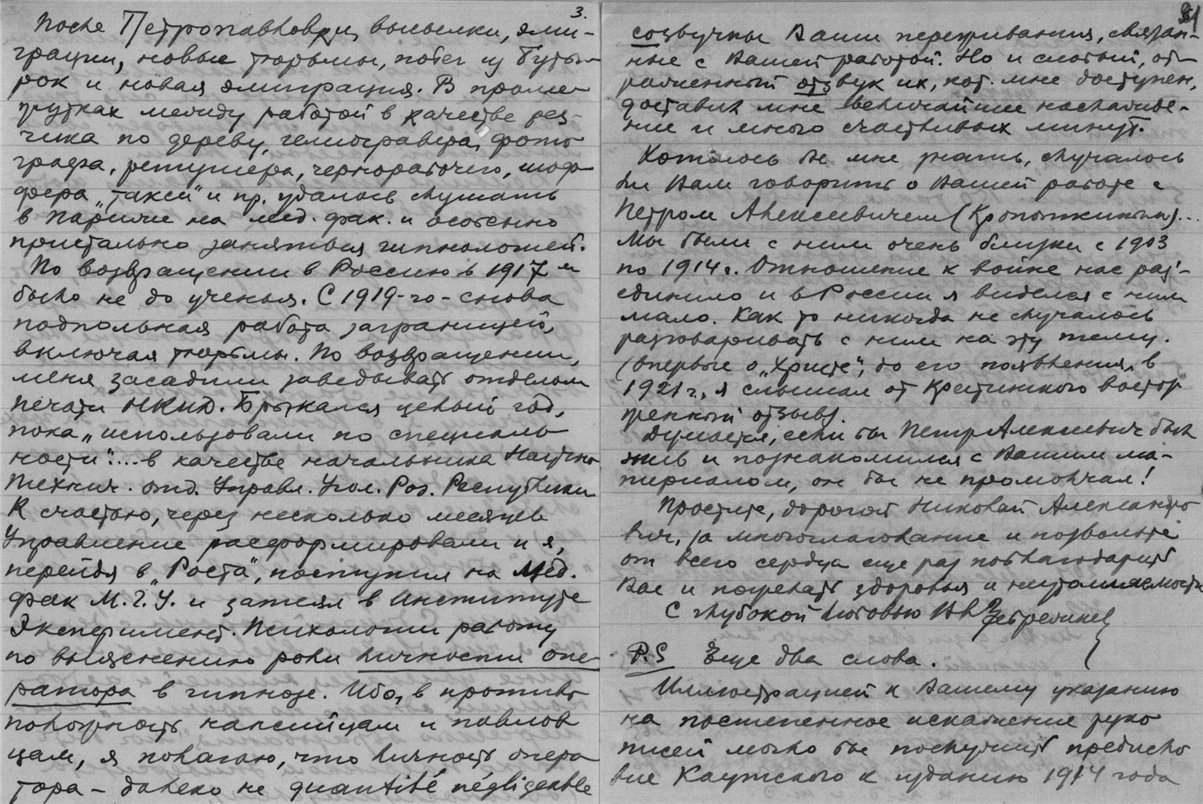 3.
После Петропавловки, высылки, эми-
грации, новые тюрьмы, побег из Буты-
рок и новая эмиграция. В проме-
жутках между работой в качестве рез-
чика по дереву, гелиогравера, фото
графа, ретушера, чернорабочего, шоф-
фера „такси" и пр. удалось слушать
в Париже на мед. фак. и особенно
пристально заняться гипнологией.
По возвращении в Россию в 1917 г
было не до ученья. С 1919-го - снова
подпольная работа заграницей,
включая тюрьмы. По возвращении,
меня засадили заведывать отделом
печати НКИД. Брыкался целый год,
пока „использовали по специаль
ности"... в качестве начальника Научно
Технич. отд. Управл. Угол. Роз. Республики
К счастью, через несколько месяцев
Управление расформировали и я,
перейдя в „Роста", поступил на Мед.
фак М.Г.У. и затеял в Институте
Эксперимент. Психологии работу
по выяснению роли личности опе
ратора в гипнозе. Ибо, в противо
положность нансийцам и павлов
цам, я полагаю, что личность опера
тора - далеко не quantité négligeable
созвучны Ваши переживания, связан-
ные с Вашей работой. Но и слабый, от-
раженный отзвук их, кот. мне доступен,
доставил мне величайшее наслажде-
ние и много счастливых минут.
Хотелось бы мне знать, случалось
ли Вам говорить о Вашей работе с
Петром Алексеевичем (Кропоткиным)..
Мы были с ним очень близки с 1903
по 1914 г. Отношение к войне нас раз'-
единило и в России я виделся с ним
мало. Как то никогда не случалось
разговаривать с ним на эту тему.
(Впервые о „Христе", до его появления, в
1921 г., я слышал от Крестинского востор
женный отзыв).
Думается, если бы Петр Алексеевич был
жив и познакомился с Вашим ма-
териалом, он бы не промолчал!
Простите, дорогой Николай Александро
вич, за многоглаголание и позвольте
от всего сердца еще раз поблагодарить
Вас и пожелать здоровья и неутомимости
С глубокой любовью
P.S Еще два слова.
Иллюстрацией к Вашему указанию
на постепенное искажение руко
писей могло бы послужить предисло
вие Каутского к изданию 1914 года